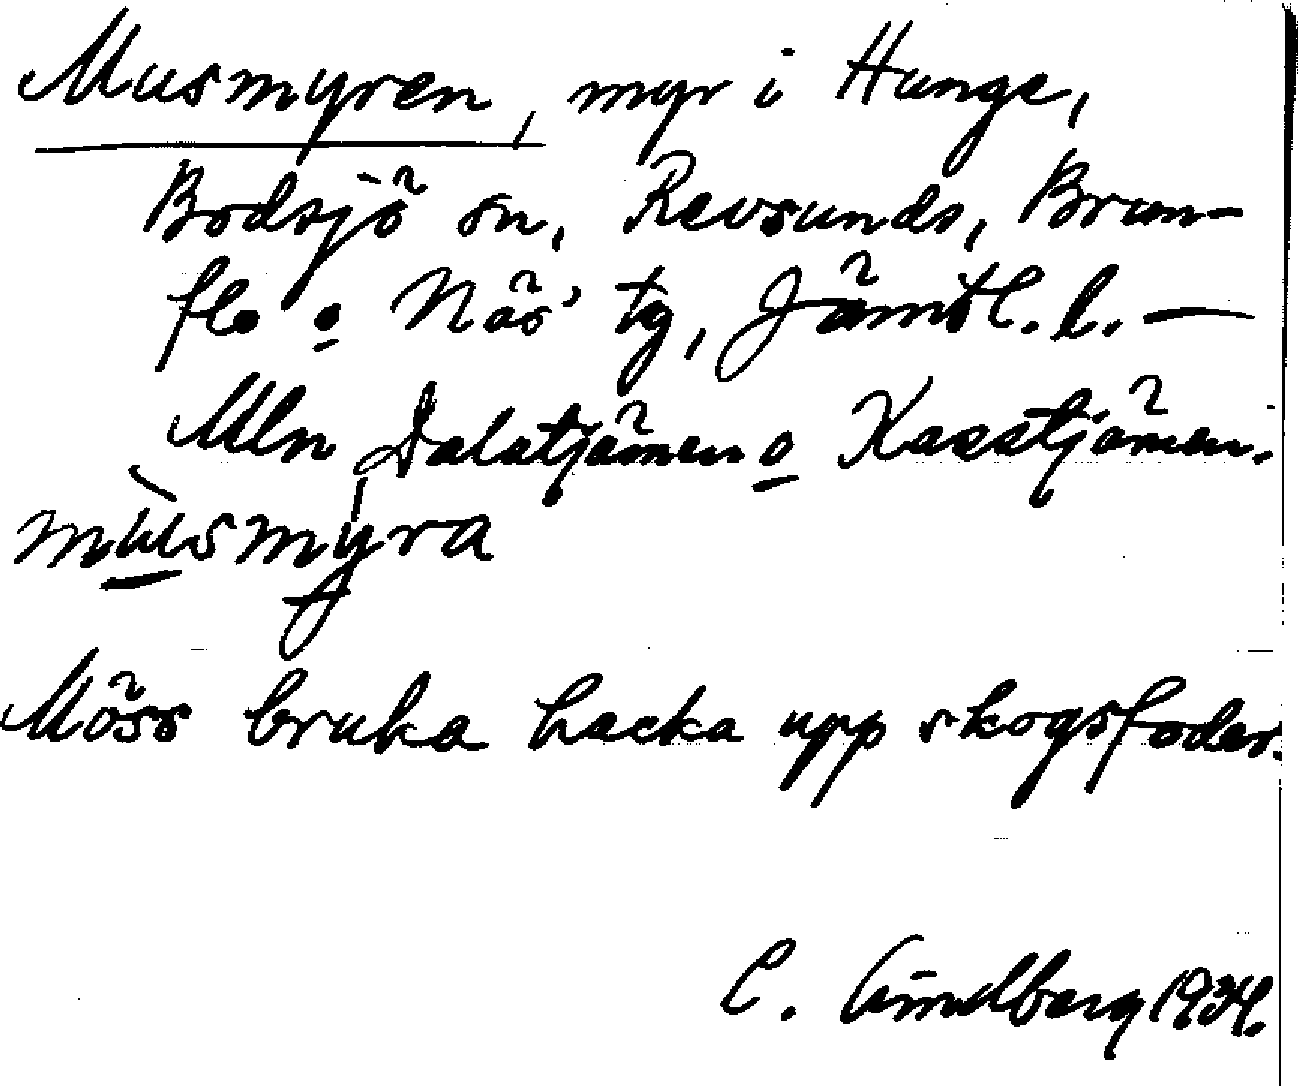 Musmyren, myr i Hunge,
Bodsjö sn, Revsunds, Brun-
flo o Näs' tg, Jämtl. l. —
Mln Dalstjärnen o Kasstjärnen.
mùsmýra
Möss bruka hacka upp skogsfoder.
C. Lindberg 1934.